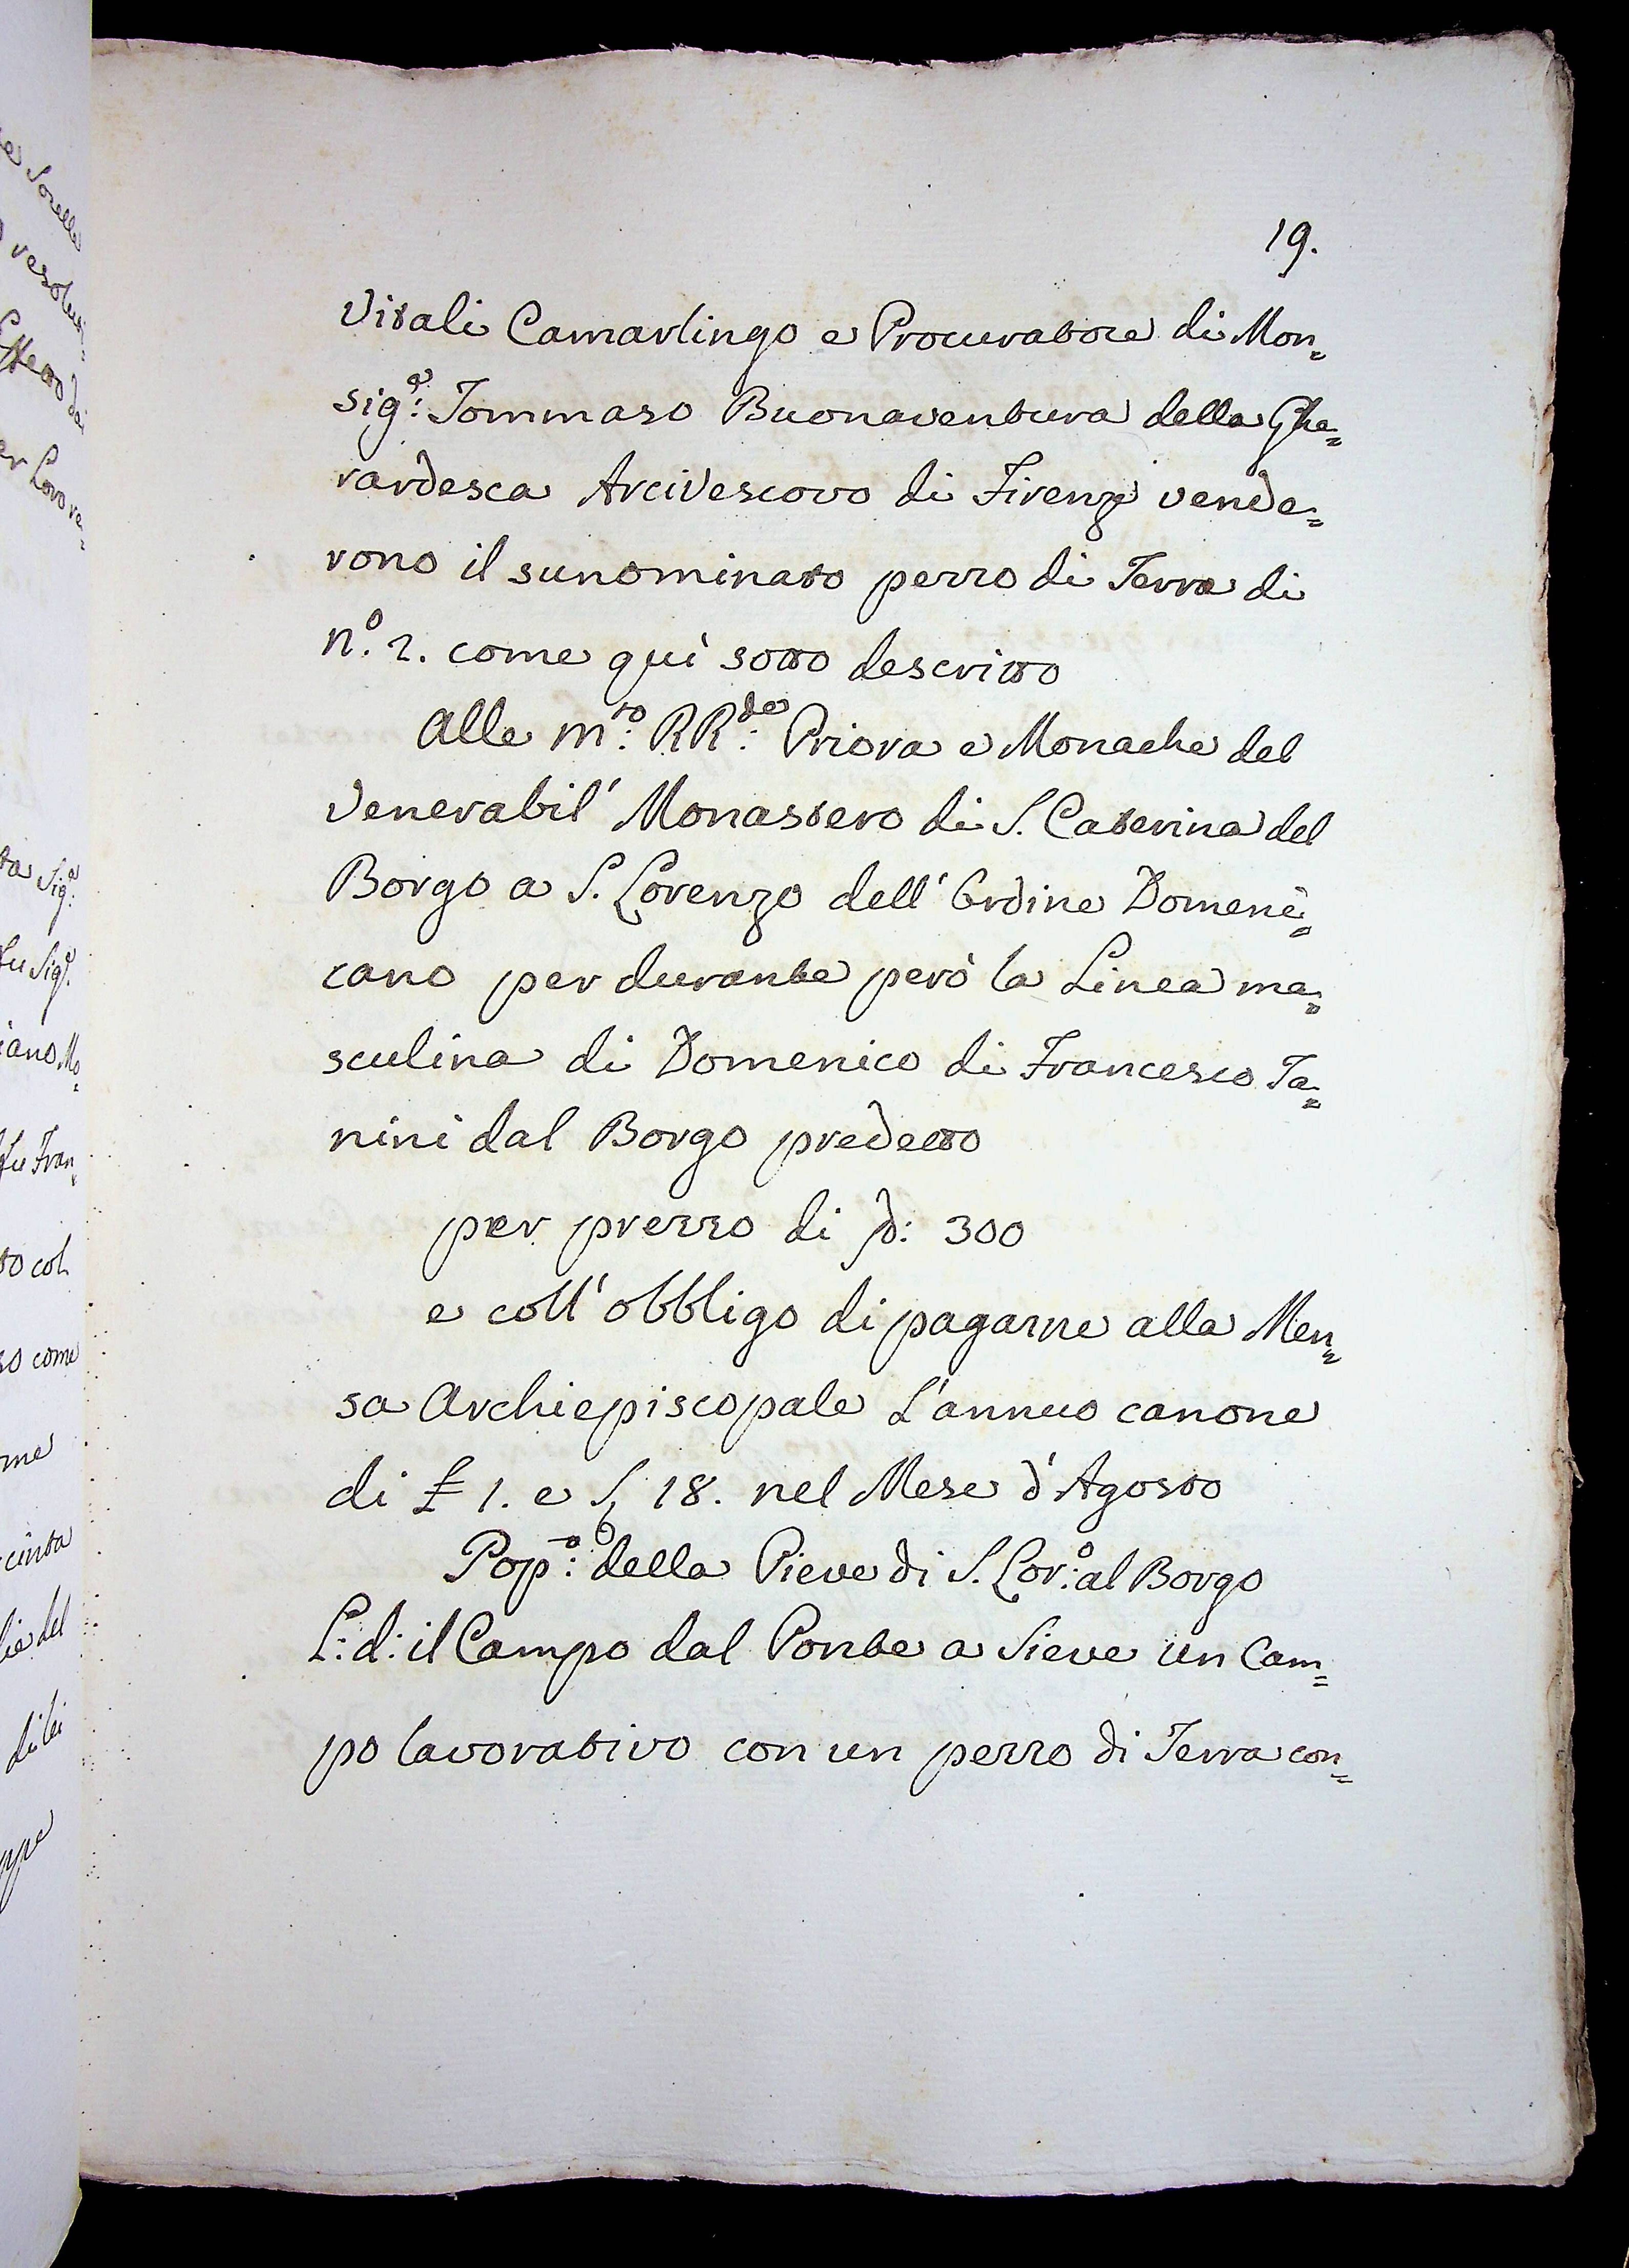 19.
Vitali Camarlingo e Procuratore di Mon=
sig.e: Tommaso Buonaventura della Ghe=
rardesca Arcivescovo di Firenze vende=
rono il sunominato pezzo di Terra di
n.o 2. come quì sotto descritto
Alle m.to: RR.de: Priora e Monache del
Venerabil' Monastero di S. Caterina del
Borgo a S. Lorenzo dell' Ordine Domeni=
cano per durante però la Linea ma=
sculina di Domenico di Francesco Ta=
nini dal Borgo predetto
per prezzo di 300
e coll' obbligo di pagarne alla Men=
sa Archiepiscopale L'annuo canone
di £ 1. e S. 18. nel Mese d'Agosto
Pop.o: della Pieve di S. Lor.o: al Borgo
L: d: il Campo dal Ponte a Sieve un Cam=
po lavorativo con un pezzo di Terra con=